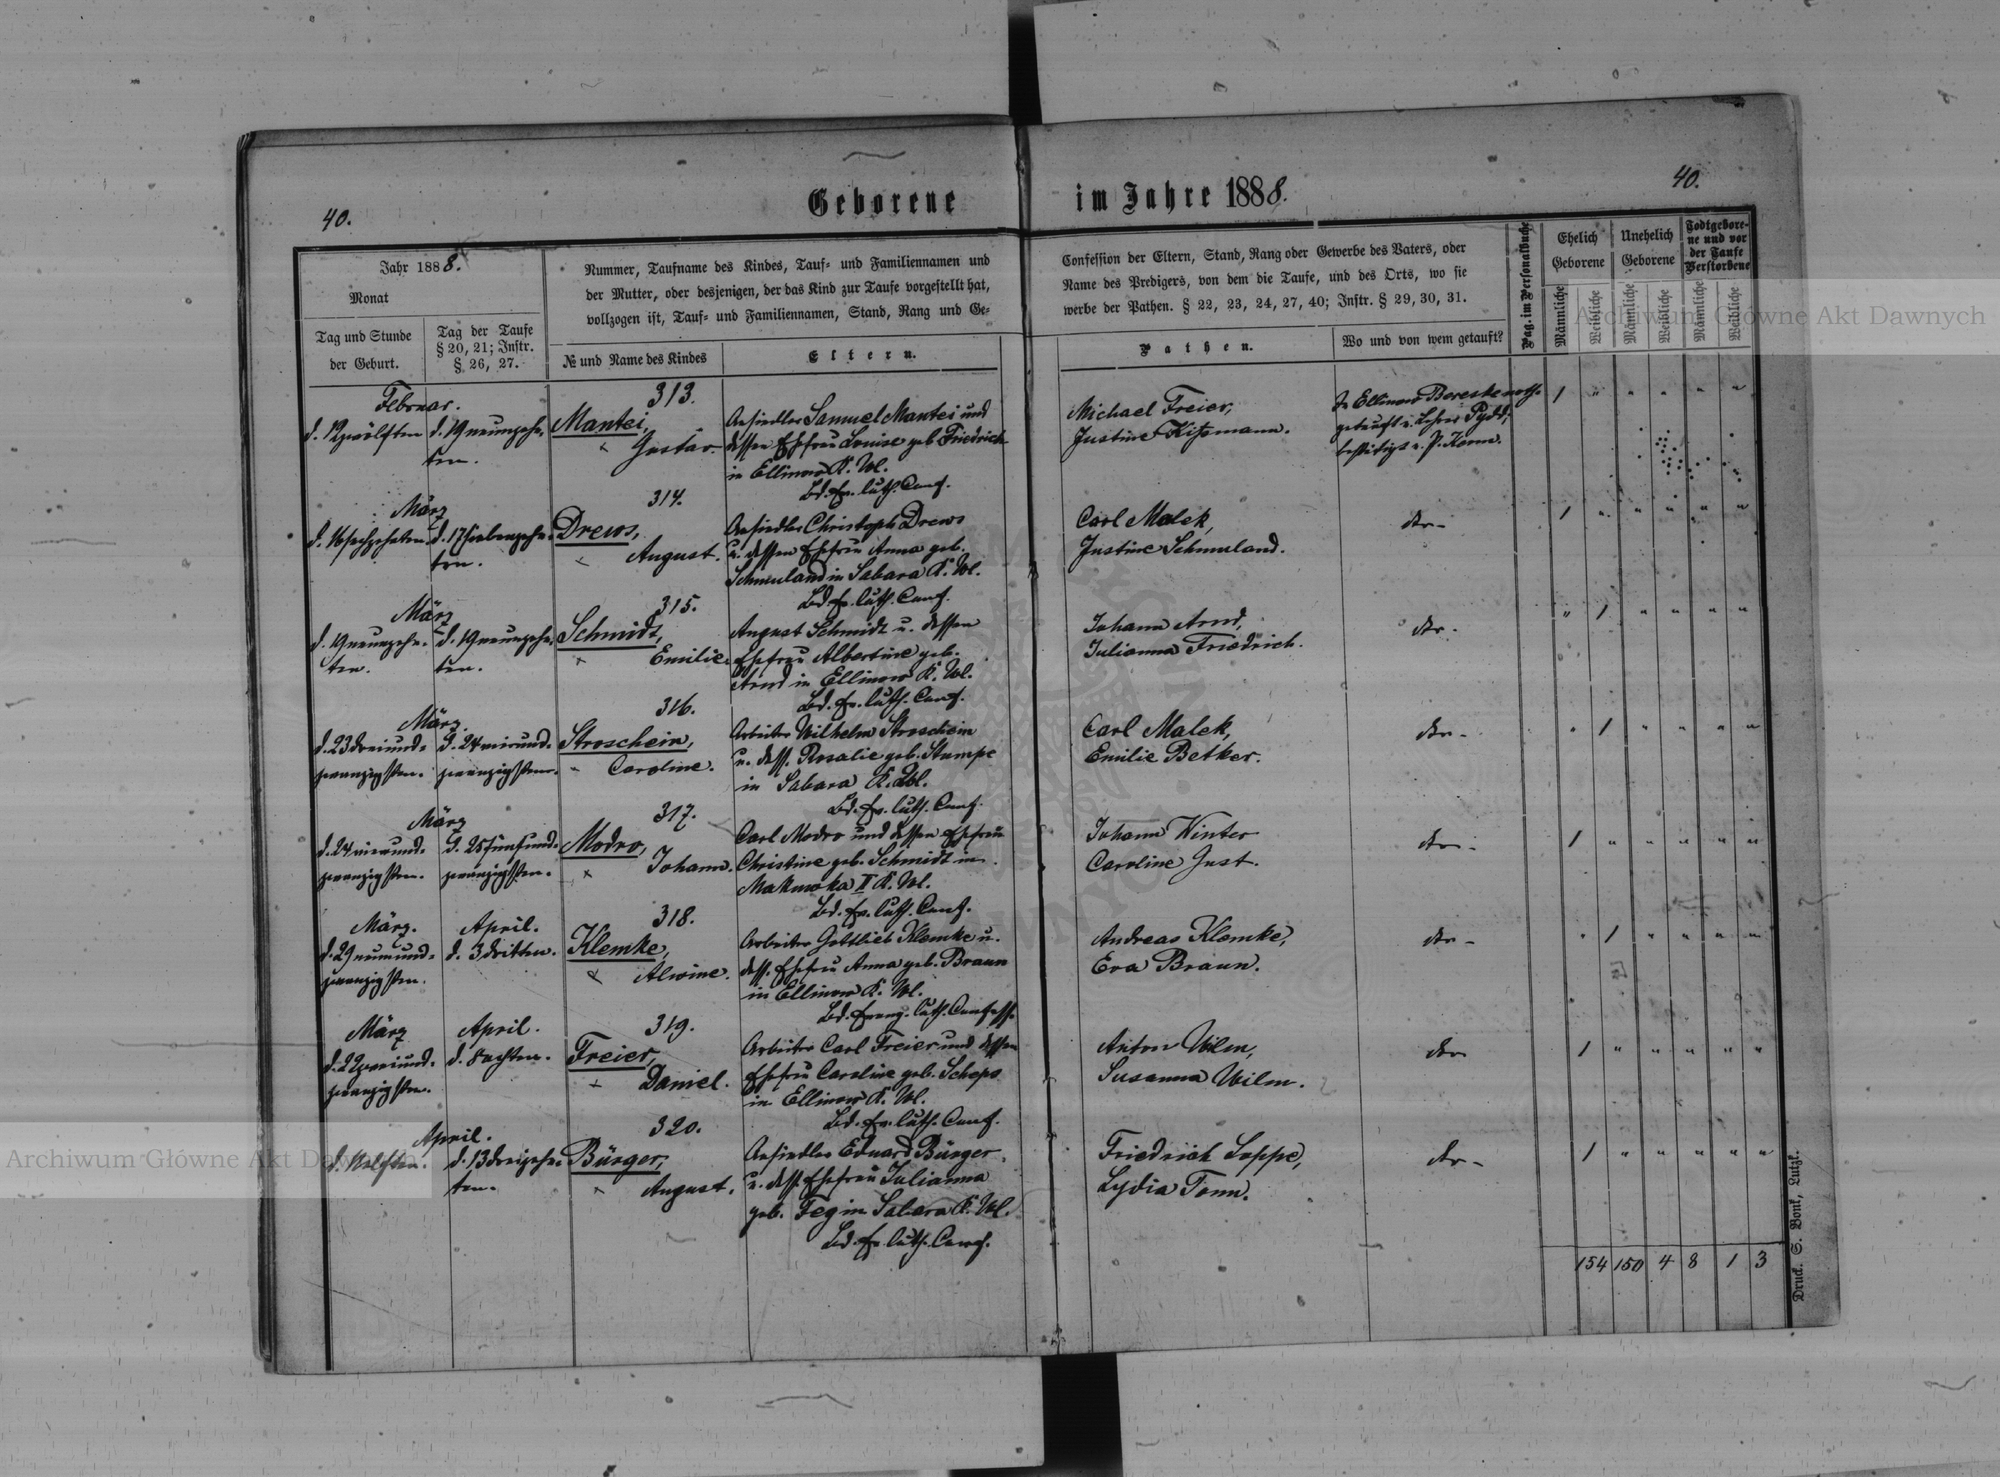 Geborene im Jahre 1888.
40.
40.
Jahr 1888.
Monat
Tag und Stunde
der Geburt.
Tag der Taufe
§ 20, 21; Instr.
§ 26, 27.
Nummer, Taufname des Kindes, Tauf- und Familiennamen und
der Mutter, oder desjenigen, der das Kind zur Taufe vorgestellt hat,
vollzogen ist, Tauf- und Familiennamen, Stand, Rang und Ge-
№ und Name des Kindes
Eltern.
Confession der Eltern, Stand, Rang oder Gewerbe des Vaters, oder
Name des Predigers, von dem die Taufe, und des Orts, wo sie
werbe der Pathen. § 22, 23, 24, 27, 40; Instr. § 29, 30, 31.
Pathen.
Wo und von wem getauft?
Pag. im Personalbuche
Ehelich
Geborene
Unehelich
Geborene
Todtgebore-
ne und vor
der Taufe
Verstorbene
Männliche
Weibliche
Männliche
Weibliche
Männliche
Weibliche
Februar.
d. 12 zwölften
d. 19 neunzehn-
ten.
313.
Mantei,
Gustav.
Ansiedler Samuel Mantei und
dessen Ehefrau Louise geb. Friedrich
in Ellinow K. Wl.
Bd. Ev. luth. Conf.
Michael Freier,
Justine Kitzmann.
In Ellinow
getauft v. Lehrer Pydd,
bestätigt v. P. Kerm.
März
d. 16 sechzehnten.
d. 17 siebenzehn-
ten.
314.
Drews,
August.
Ansiedler Christoph Drews
u. dessen Ehefrau Anna geb.
Schmuland in Sabara K. Wl.
Bd. Ev. luth. Conf.
Carl Malek,
Justine Schmuland.
dto-
März
d. 19 neunzehn-
ten.
d. 19 neunzehn-
ten.
315.
Schmidt,
Emilie.
August Schmidt u. dessen
Ehefrau Albertine geb.
Arnd in Ellinow K. Wl.
Bd. Ev. luth. Conf.
Johann Arnd,
Julianna Friedrich.
dto-
März
d. 23 dreiund-
zwanzigsten.
d. 24 vierund-
zwanzigsten.
316.
Stroschein,
Caroline.
Arbeiter Wilhelm Stroschein
u. dess. Rosalie geb. Stumpe
in Sabara K. Wl.
Bd. Ev. luth. Conf.
Carl Malek,
Emilie Betker.
dto-
März
d. 24 vierund-
zwanzigsten.
d. 25 fünfund-
zwanzigsten.
317.
Modro,
Johann.
Carl Modro und dessen Ehefrau
Christine geb. Schmidt in
Makowka II K. Wl.
Bd. Ev. luth. Conf.
Johann Winter
Caroline Just.
dto-
März.
d. 29 neunund-
zwanzigsten.
April.
d. 3 dritten.
318.
Klemke,
Alwine.
Arbeiter Gottlieb Klemke u.
dess. Ehefrau Anna geb. Braun
in Ellinow K. Wl.
Bd. Evang. luth. Confess.
Andreas Klemke,
Eva Braun.
dto-
März
d. 22 zweiund-
zwanzigsten.
April.
d. 8 achten.
319.
Freier,
Daniel.
Arbeiter Carl Freier und dessen
Ehefrau Caroline geb. Scheps
in Ellinow K. Wl.
Bd. Ev. luth. Conf.
Anton Wilm,
Susanna Wilm.
dto
April.
d. 11 elften.
d. 13 dreizehn-
ten.
320.
Bürger,
August.
Ansiedler Eduard Bürger
u. dess. Ehefrau Julianna
geb. Feg in Sabara K. Wl.
Bd. Ev. luth. Conf.
Friedrich Soppe,
Lydia Tonn.
dto-
154 150 4 8 1 3
Druck. S. Bonk, Lutzk.
Archiwum Główne Akt Dawnych
Archiwum Główne Akt Dawnych